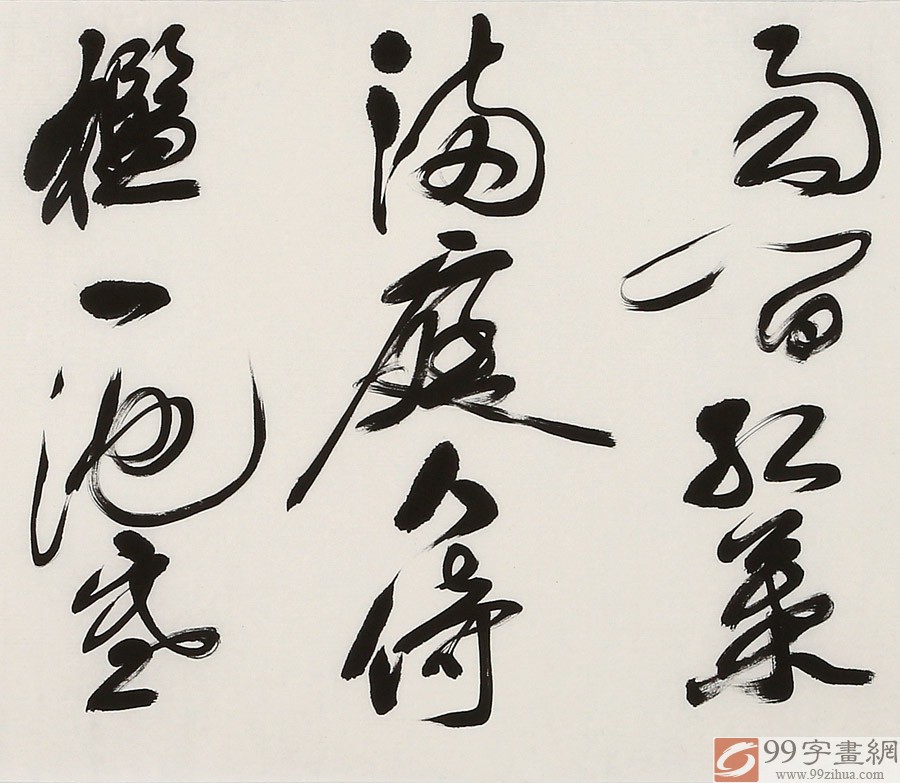 红葉
满庭人倚
槛一池
99字畫網
www.99zihua.com